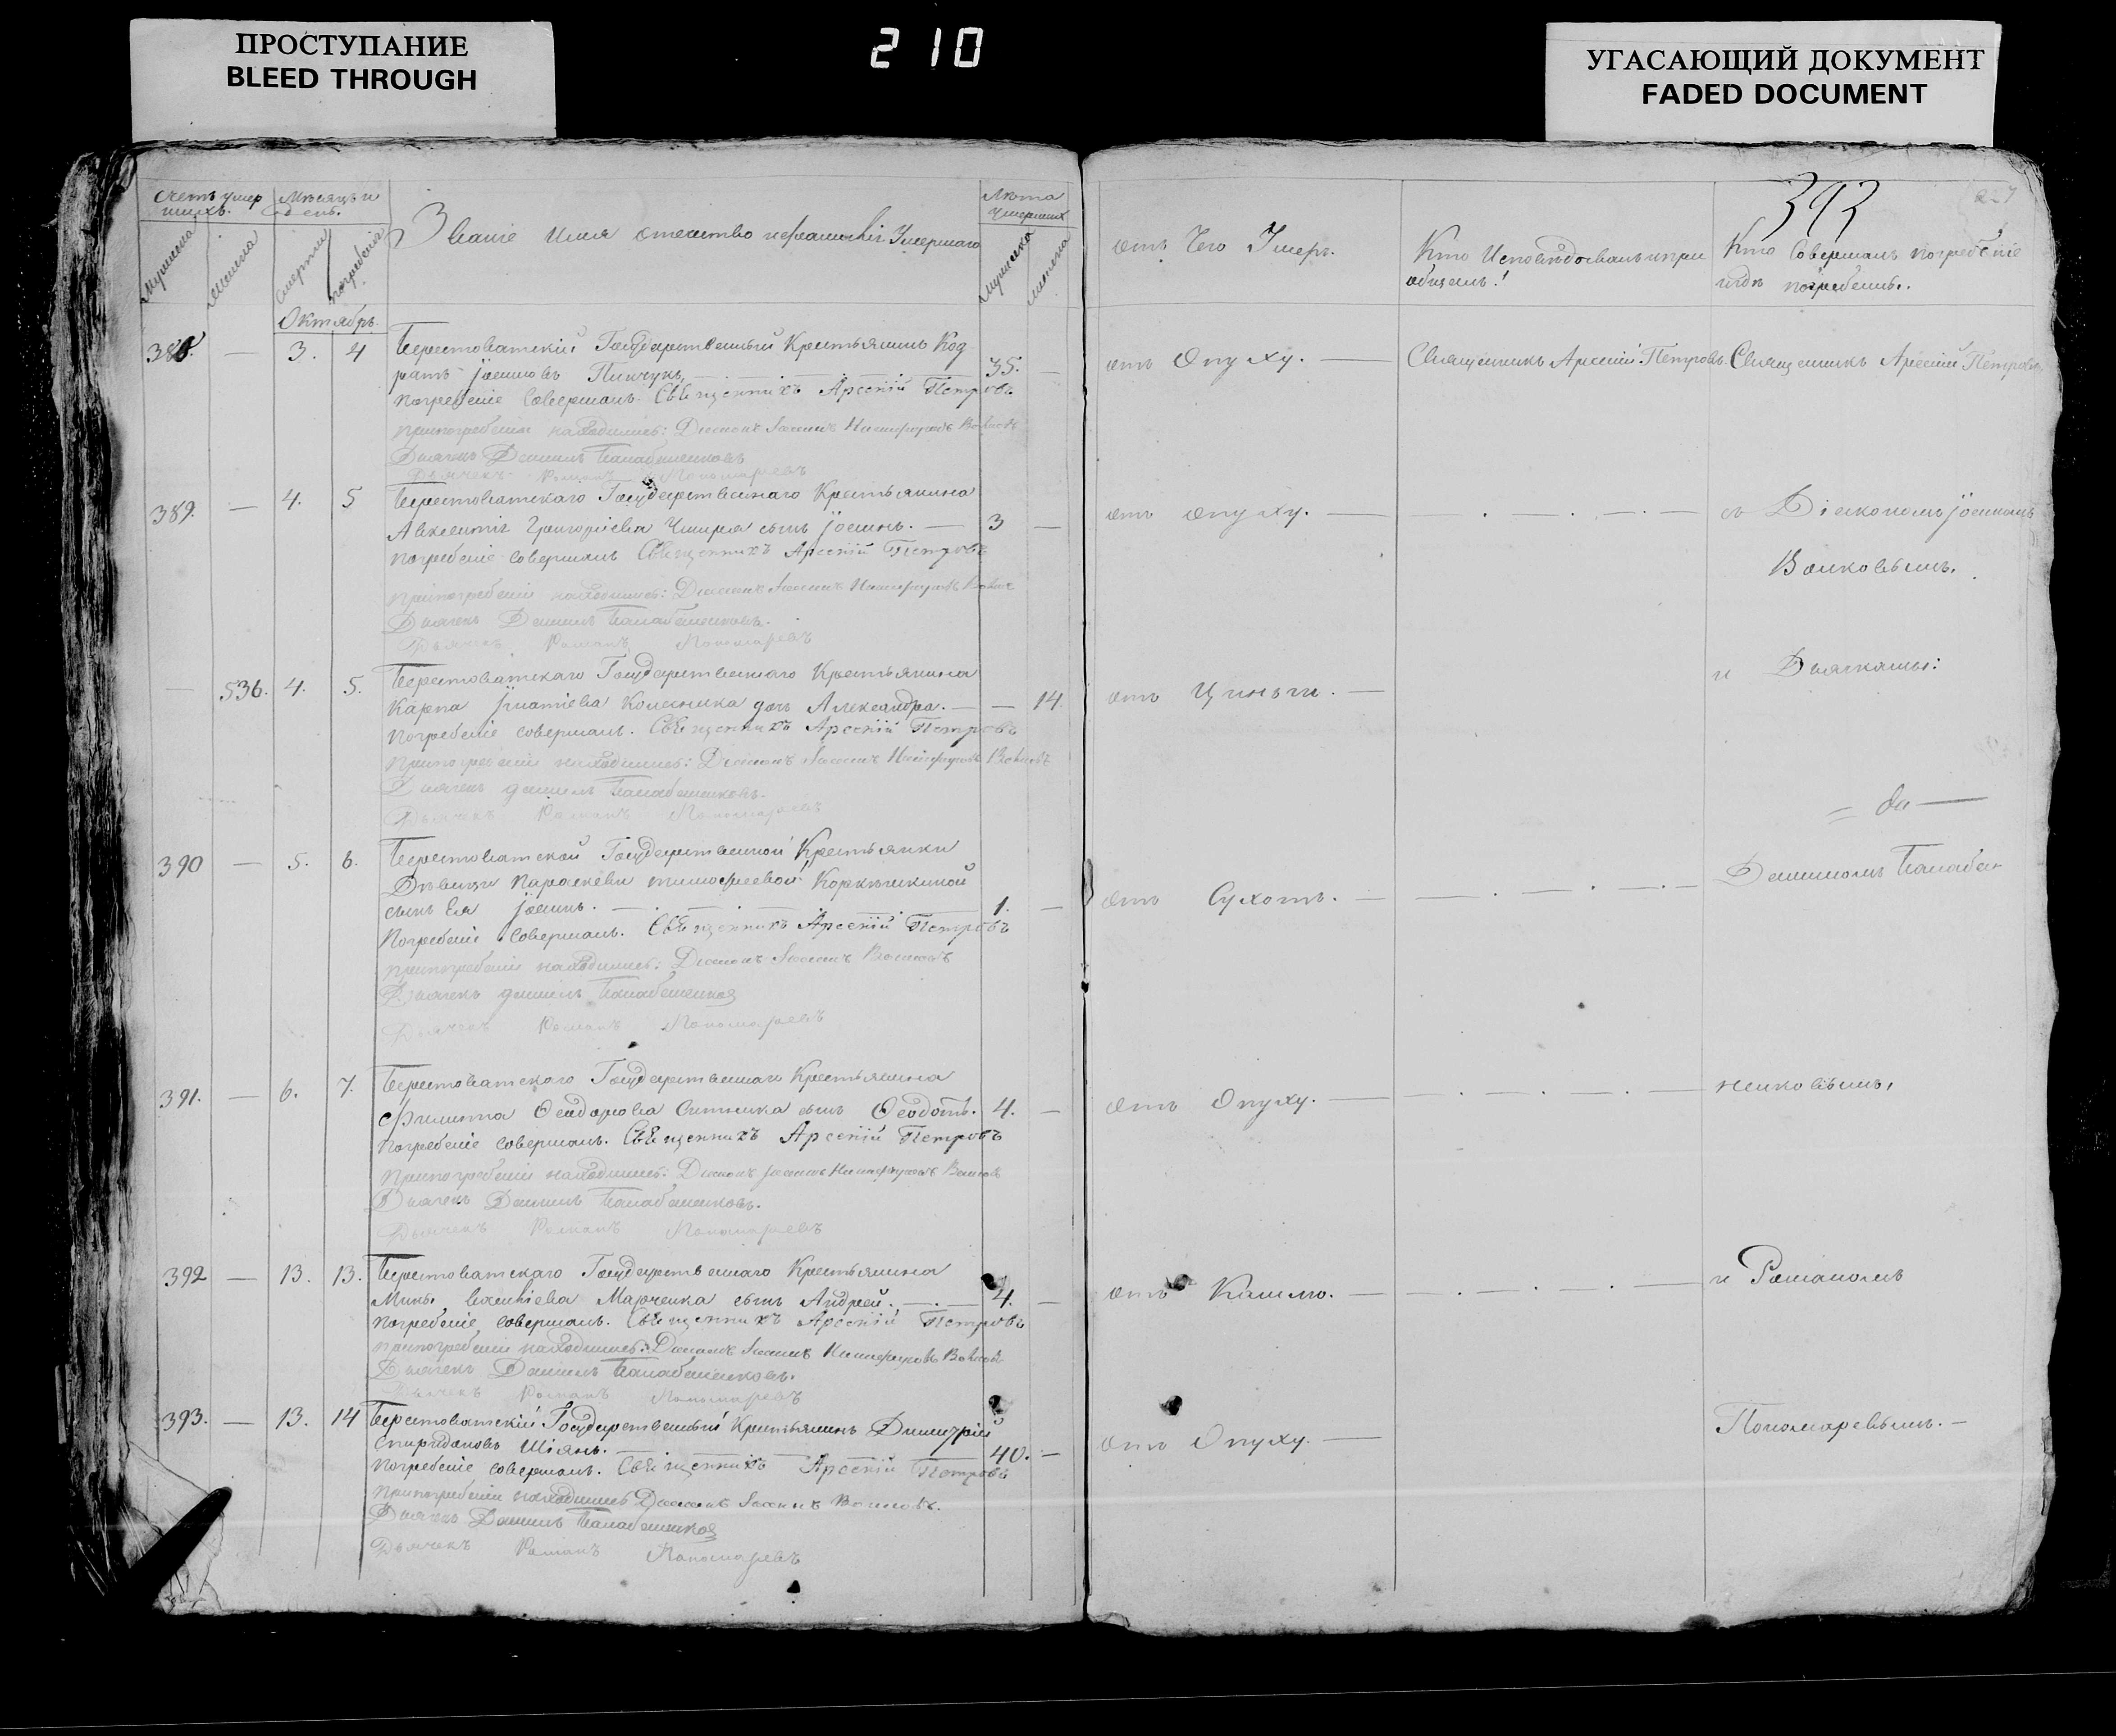 ПРОСТУПАНИЕ
BLEED THROUGH
210
УГАСАЮЩИЙ ДОКУМЕНТ
FADED DOCUMENT
393
227
Счетъ умер
шихъ.
Мѣсяцъ и
день.
Званіе имя отечество и фамилія Умершаго
Лѣта
Умершихъ
мужеска
женска
смерти
погребенія
мужеска
женска
отъ Чего Умеръ.
Кто Исповѣдовалъ и при
общалъ!
Кто Совершалъ погребеніе
и гдѣ погребены.
Октябрь.
388. — 3. 4 Берестоватскій Государственный Крестьянинъ Код
ратъ Іоанновъ Пинчукъ. 35. —
отъ Опуху. — Священникъ Арсеній Петровъ. Священникъ Арсеній Петровъ
Погребеніе Совершалъ. Священникъ Арсеній Петровъ
при погребеніи находились: Діаконъ Іоаннъ Никифоровъ Волковъ
Дьячекъ Даніилъ
Дьячекъ Романъ Пономаревъ
389. — 4. 5 Берестоватскаго Государственнаго Крестьянина
Авксентія Григоріева сынъ Іоаннъ. — 3 —
отъ опуху. — съ Діакономъ Іоанномъ
Волковымъ.
Погребеніе совершалъ Священникъ Арсеній Петровъ
при погребеніи находились: Діаконъ Іоаннъ Никифоровъ
Дьячекъ Даніилъ
Дьячекъ Романъ Пономаревъ
— 536. 4. 5. Берестоватскаго Государственнаго Крестьянина
Карпа Игнатіева Колесника дочь Александра. — — 14.
отъ Цынъги. —
и Дьячками:
Погребеніе совершалъ. Священникъ Арсеній Петровъ
при погребеніи находились: Діаконъ Іоаннъ Никифоровъ Волковъ
Дьячекъ Даніилъ
Дьячекъ Романъ Пономаревъ
390 — 5. 6. Берестоватской Государственной Крестьянки
Дѣвицы Параскевы Тимофеевой
сынъ Ея Іоаннъ. 1. —
отъ Сухотъ. —
Даниломъ
Погребеніе Совершалъ. Священникъ Арсеній Петровъ
при погребеніи находились: Діаконъ Іоаннъ Волковъ
Дьячекъ Даніилъ
Дьячекъ Романъ Пономаревъ
391. — 6. 7. Берестоватскаго Государственнаго Крестьянина
Филипа Феодорова Ситника сынъ Феодотъ. 4. —
отъ Опуху. —
Погребеніе совершалъ. Священникъ Арсеній Петровъ
при погребеніи находились: Діаконъ Іоаннъ Никифоровъ Волковъ
Дьячекъ Даніилъ
Дьячекъ Романъ Пономаревъ
392 — 13. 13. Берестоватскаго Государственнаго Крестьянина
Мины Марченка сынъ Андрей. — 4. —
отъ Кашлю. —
и Романомъ
Погребеніе совершалъ. Священникъ Арсеній Петровъ
при погребеніи находились: Діаконъ Іоаннъ Никифоровъ Волковъ
Дьячекъ Даніилъ
Дьячекъ Романъ Пономаревъ
393. — 13. 14 Берестоватскій Государственный Крестьянинъ Димитрій
Спиридоновъ Шіянъ. — 40. —
отъ Опуху. —
Пономаревымъ. —
Погребеніе совершалъ. Священникъ Арсеній Петровъ
при погребеніи находились Діаконъ Іоаннъ Волковъ.
Дьячекъ Даніилъ
Дьячекъ Романъ Пономаревъ